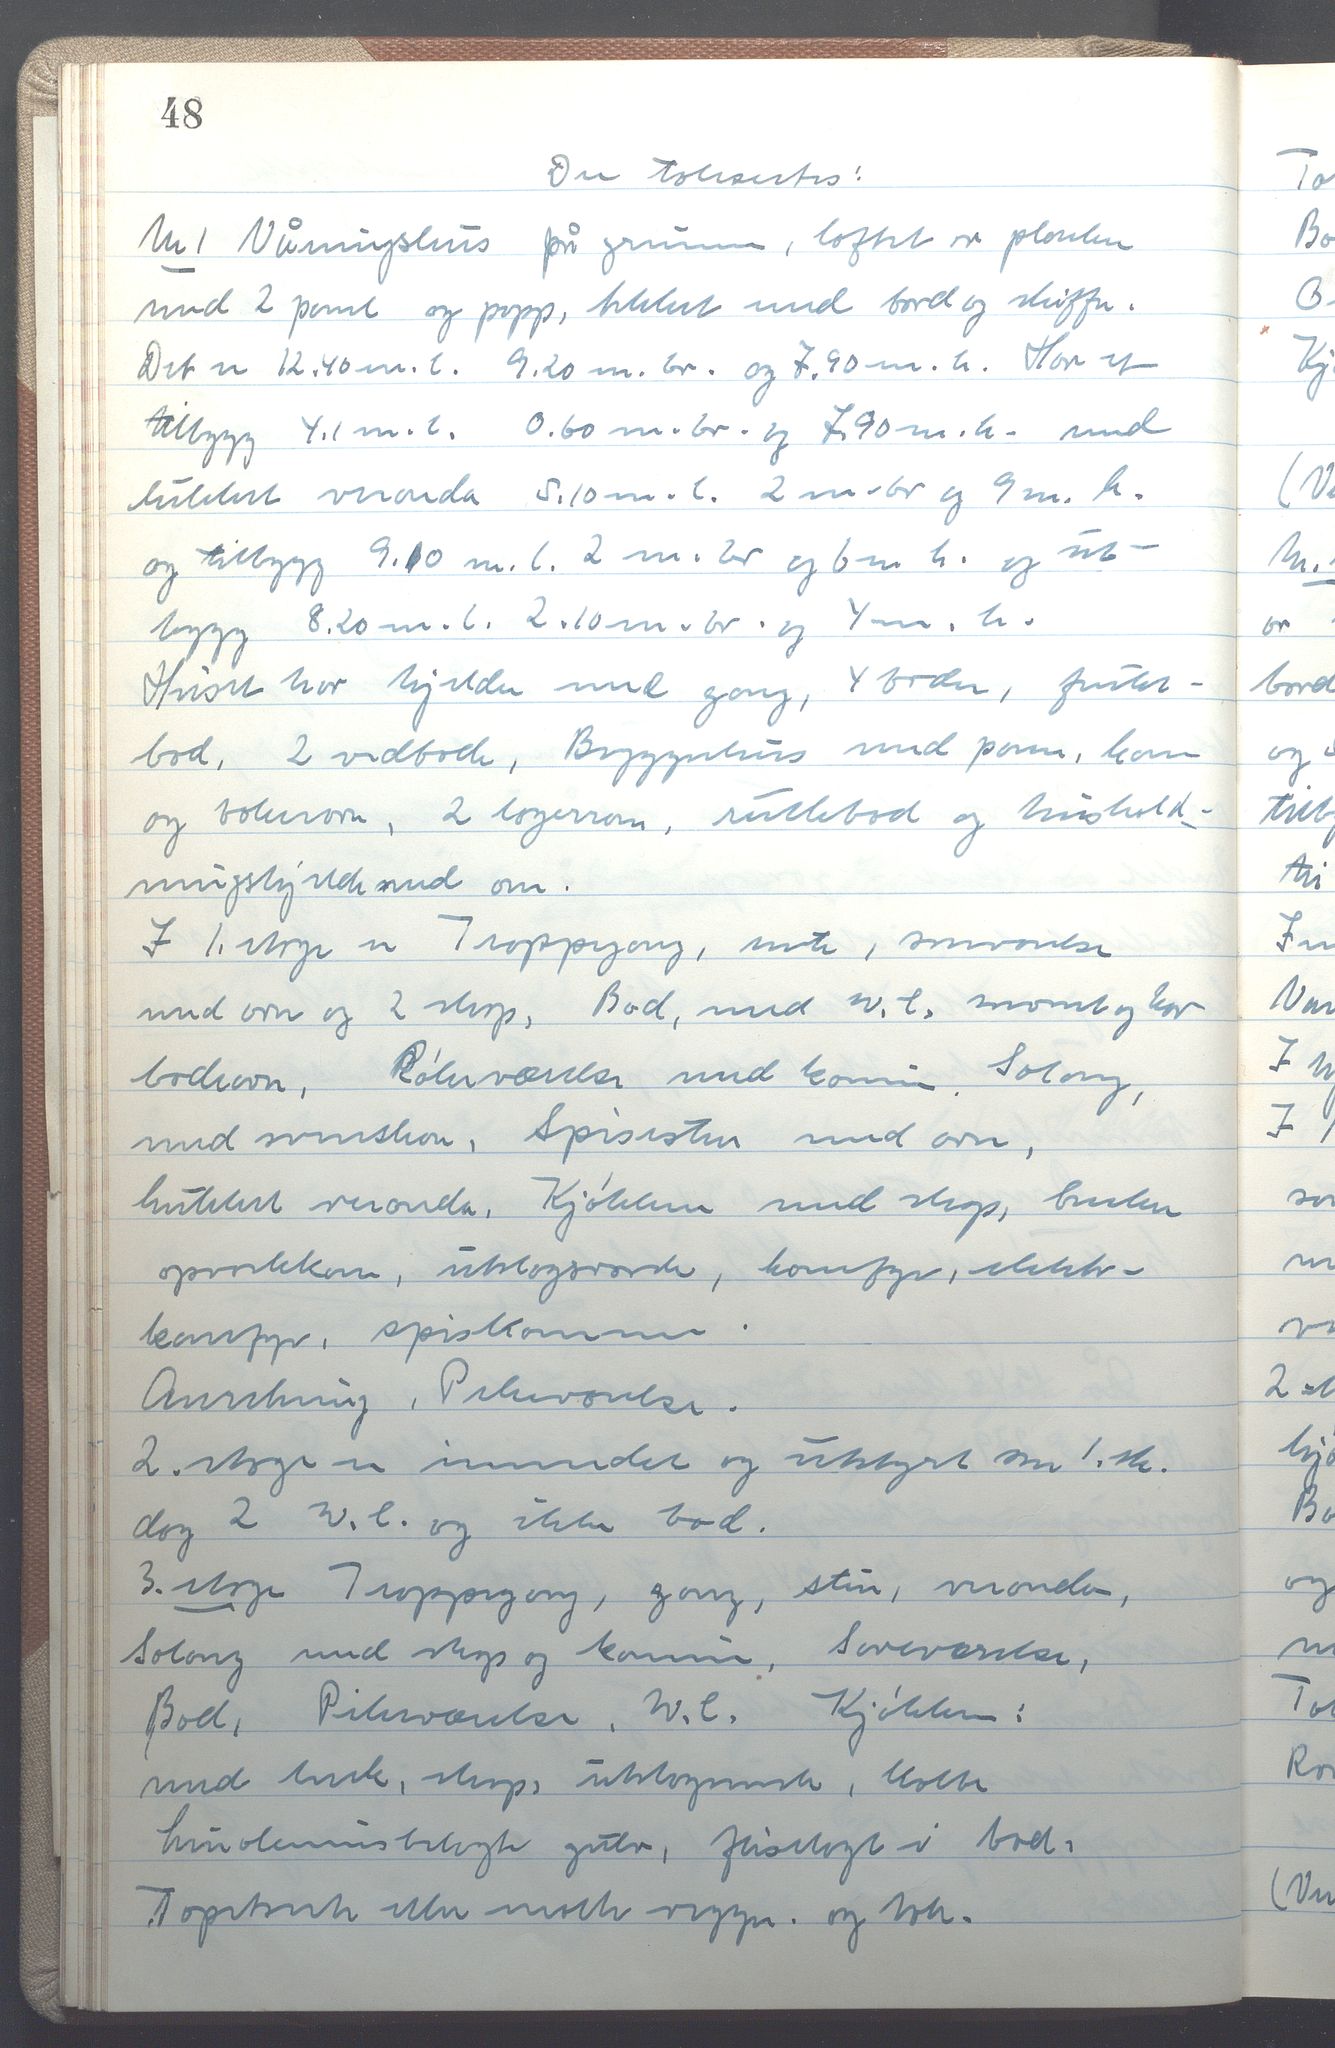 48
Der taksertes:
Nr 1 Våningshus på grunn, loftet av planker
med 2 panel og papp, tekket med bord og skiffer.
Det er 12.40 m. l. 9.20 m. br. og 7.90 m. h. Har et
tilbygg 4.1 m. l. 0.60 m. br. og 7.90 m. h. med
lukket veranda 5.10 m. l. 2 m. br og 9 m. h.
og tilbygg 9.10 m. l. 2 m. br og 6 m h. og ut-
bygg 8.20 m. l. 2.10 m. br. og 4 m. h.
Huset har kjelder med gang, 4 boder, frukt-
bod, 2 vedboder, Bryggerhus med panne, kum
og bakerovn, 2 lagerrom, rullebod og hushold-
ningskjelder med ovn.
I 1. etage er Trappegang, entre, soveværelse
med ovn og 2 skap, Bad, med w.c. servant og kar
badeovn, Røkeværelse med kamin. Salong,
med svenskovn, Spisestue med ovn,
lukket veranda. Kjøkken med skap, benker
opvaskkum, utslagsvask, komfyr, elektr-
komfyr, spiskammer.
Anretning, Pikeværelse.
2. etage er innredet og utstyrt som 1. et.
dog 2 W.C. og ikke bad.
3. etage Trappegang, gang, stue, veranda,
Salong med skap og kamin, Soveværelse,
Bad, Pikeværelse, W.C. Kjøkken:
med benk, skap, utslagsvask,
linoleumsbelagte gulv, fliselagt i bad.
Tapetserte eller malte vegger. og tak.